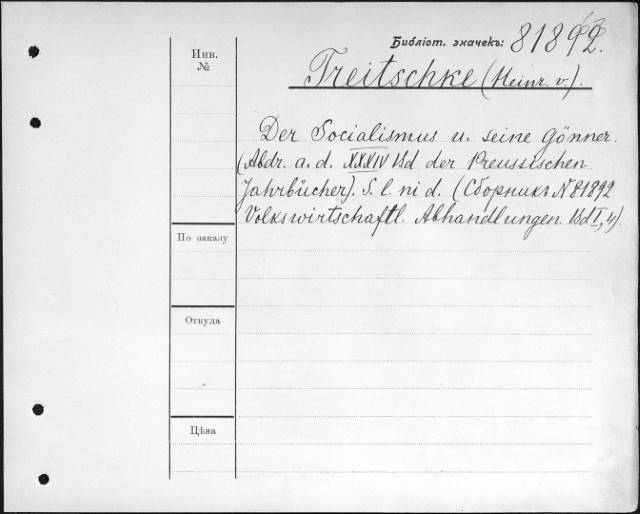 Библіот. значекъ: 81892.
Инв.
№
Treitschke (Heinr. v.).
Der Socialismus u. seine Gönner.
(Abdr. a. d. XXXIV Bd der Preussischen
Jahrbücher). S. l. ni d. (Сборникъ N 81892
Volkswirtschaftl. Abhandlungen. Bd I, 4).
По заказу
Откуда
Цѣна